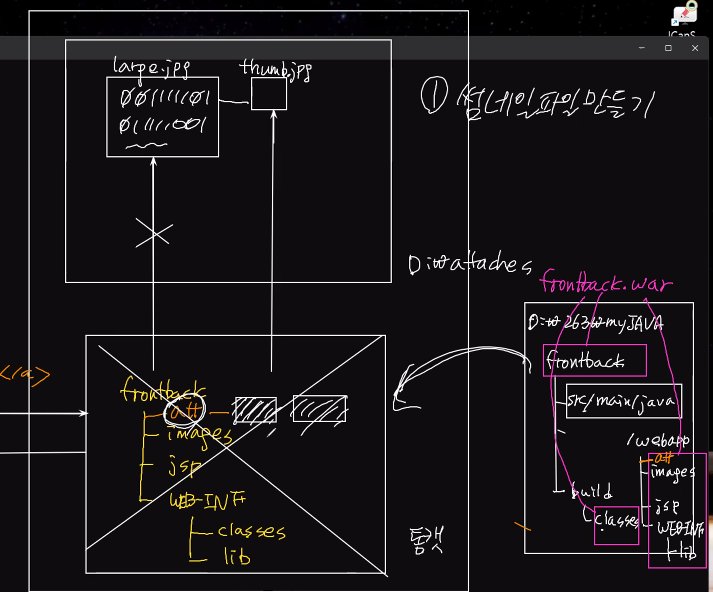 large.jpg
thumb.jpg
001111101
01111001
① 썸네일파일만들기
D:₩attaches
frontback.war
D:₩263₩myJAVA
frontback
src/main/java
/webapp
att
images
build
jsp
classes
WEB-INF
lib
</a>
frontback
att
images
jsp
WEB-INF
classes
lib
톰캣